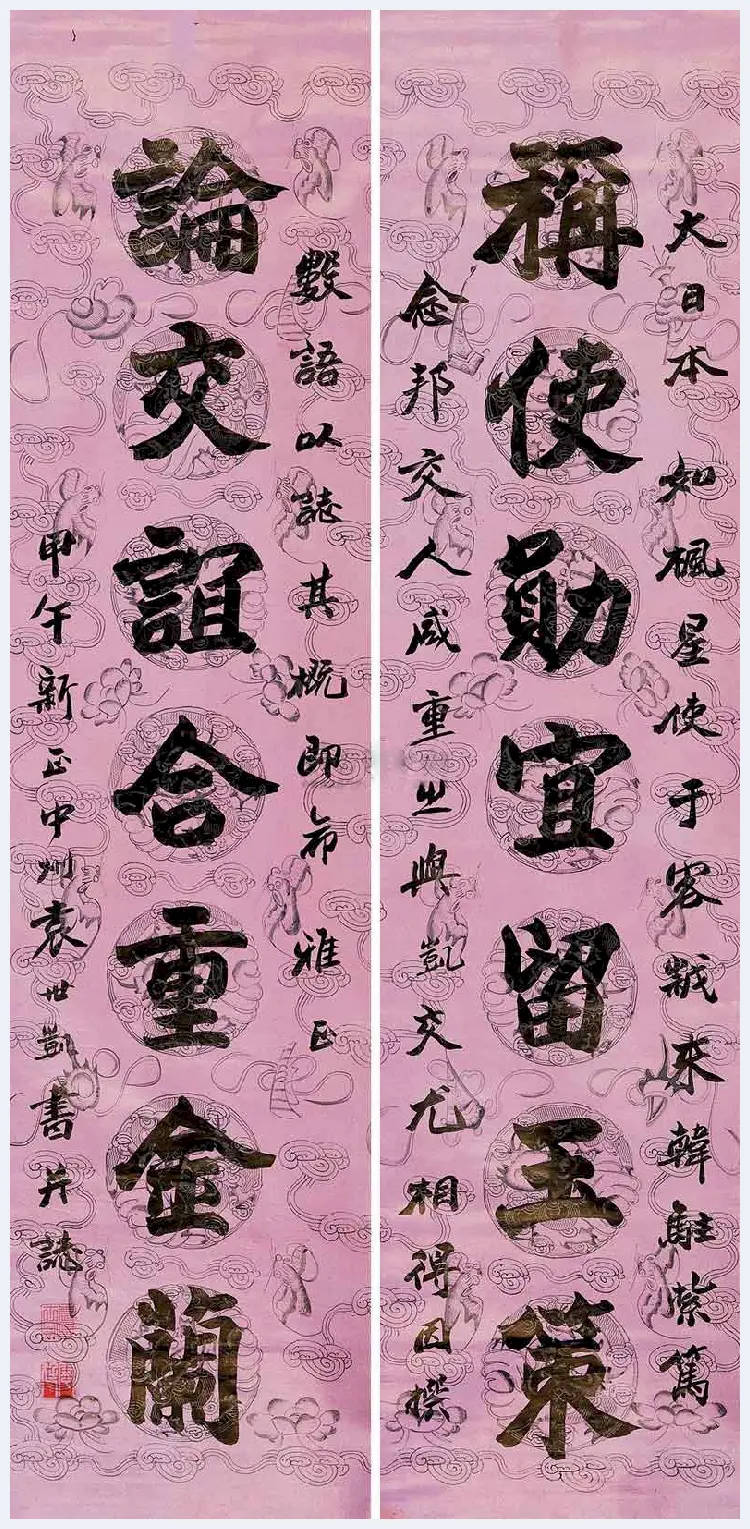 大日本 如楓星使于客歲來韓駐紮篤
稱使勛宜留玉策
念邦交人咸重之與凱交尤相得因撰
數語以誌其概即希 雅正
論交誼合重金蘭
甲午新正中州袁世凱書并誌